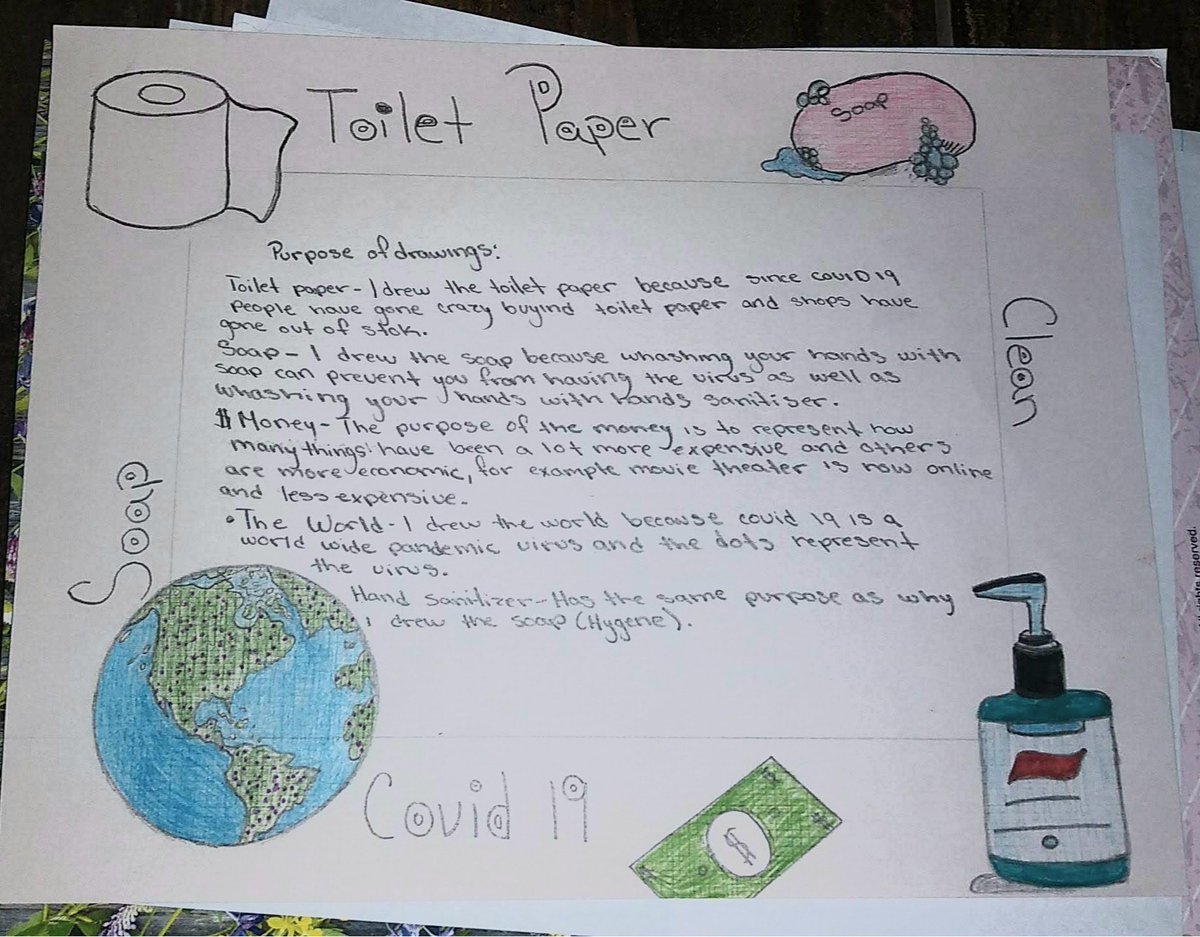 Toilet Paper
Soap
Purpose of drawings:
Toilet paper - I drew the toilet paper because since COVID 19
People have gone crazy buyind toilet paper and shops have
gone out of stok.
Soap - I drew the soap because whashing your hands with
soap can prevent you from having the virus as well as
whashing your hands with hands sanitiser.
$ Money - The purpose of the money is to represent how
many things have been a lot more expensive and others
are more economic, for example movie theater is now online
and less expensive.
• The World - I drew the world because covid 19 is a
world wide pandemic virus and the dots represent
the virus.
Hand Sanitizer - Has the same purpose as why
i drew the soap (Hygene).
Clean
Soap
Covid 19
$